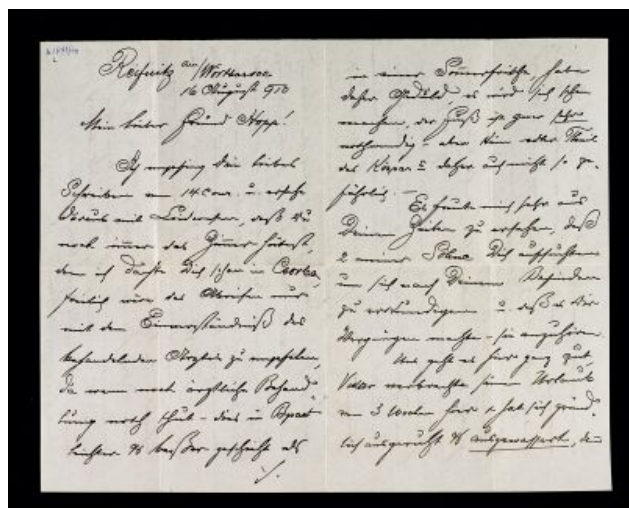 Reifnitz am/Wörthersee
16 August 910
Mein lieber Freund Hopp!
Ich empfing Dein liebes
Schreiben vom 14 cour. u. ersehe
daraus mit Bedauern, daß Du
noch immer das Zimmer hütest,
denn ich dachte Dich schon in Csorba,
freilich wäre das Abreisen nur
mit dem Einverständniß des
behandelnden Arztes zu empfehlen,
da wenn noch ärztliche Behand-
lung noth thut - dies in Bpest
leichter & besser geschieht als
./.
in einer Sommerfrische, habe
daher Geduld, es wird sich schon
machen, der Fuß ist zwar sehr
nothwendig - aber kein edler Theil
des Körpers daher auch nicht so ge-
fährlich. -
Es freute mich sehr aus
Deinen Zeilen zu ersehen, daß
2 meiner Söhne Dich aufsuchten
um sich nach Deinem Befinden
zu erkundigen u. daß es Dir
Vergnügen machte - sie anzuhören.
Uns geht es hier ganz gut,
verbrachte seinen Urlaub
von 3 Wochen hier & hat sich gründ-
lich ausgeruht & ausgewassert, den